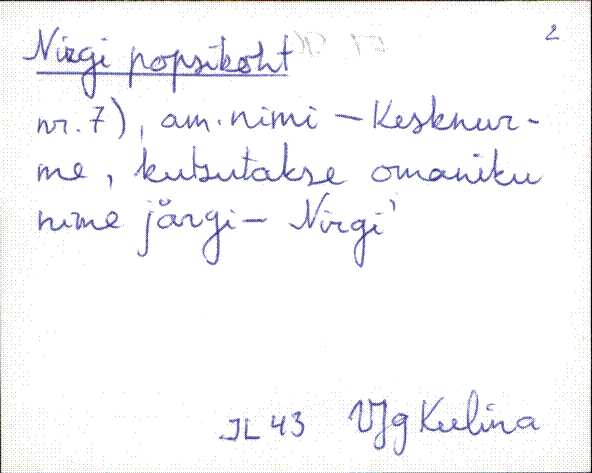 2
Nirgi popsikoht
nr. 7), am. nimi – Kesknur-
me, kutsutakse omaniku
nime järgi – Nirgi'
JL 43 VJg Kulina